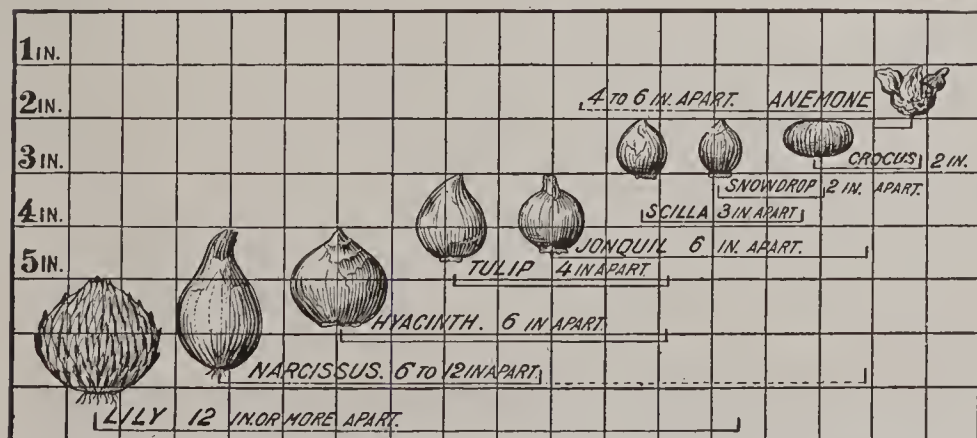 1 IN.
2 IN.
4 TO 6 IN. APART. ANEMONE
3 IN.
CROCUS 2 IN.
SNOWDROP 2 IN. APART.
4 IN.
SCILLA 3 IN APART
JONQUIL 6 IN. APART.
5 IN.
TULIP 4 IN APART.
HYACINTH. 6 IN APART.
NARCISSUS. 6 TO 12 IN APART
LILY 12 IN. OR MORE APART.